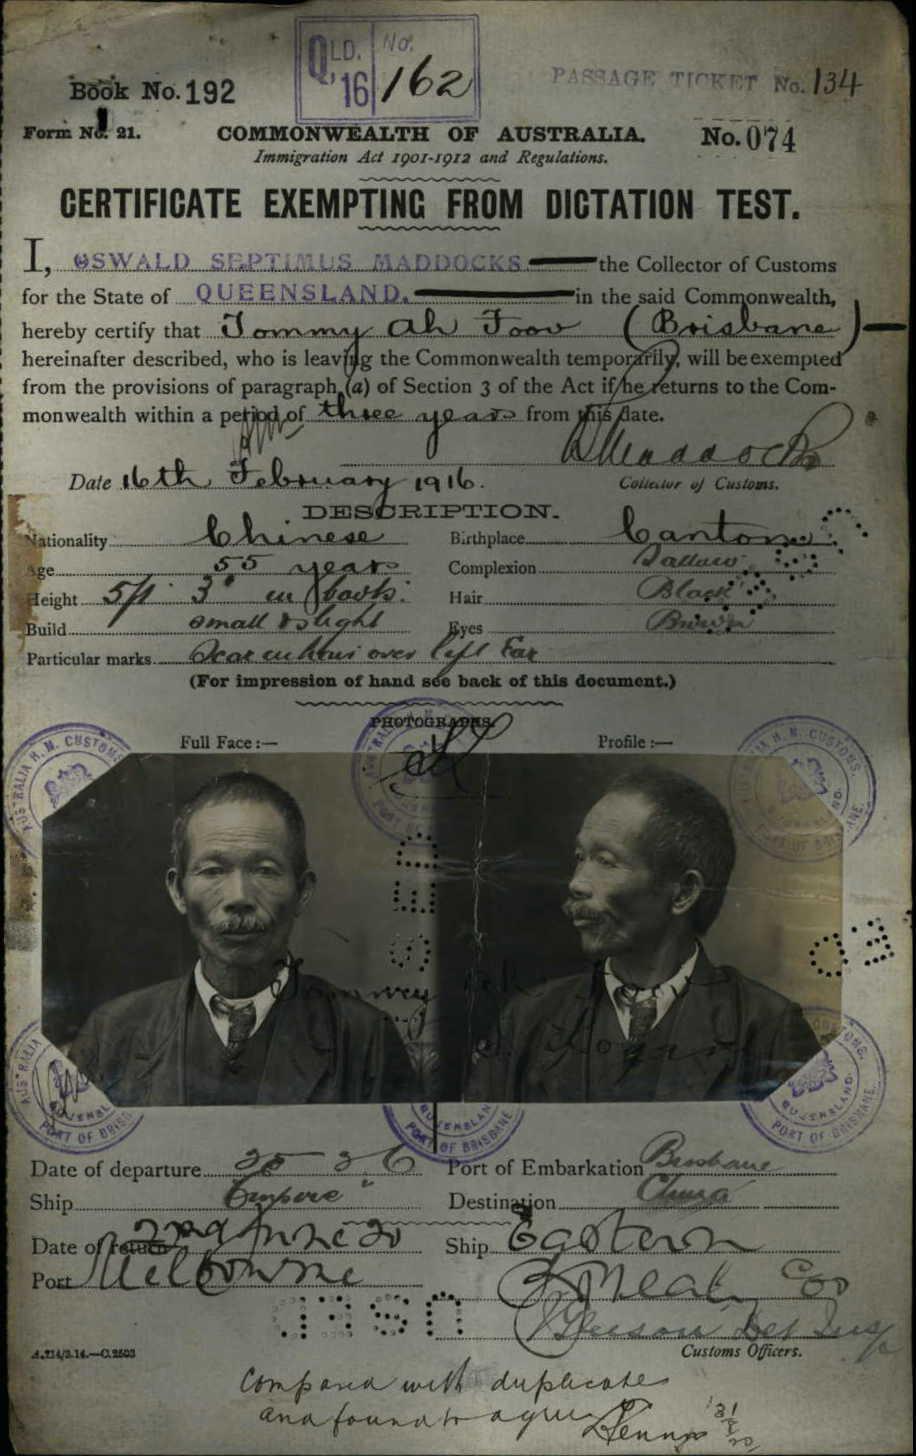 QLD. No.
'16 162
PASSAGE TICKET No. 134
Book No. 192
Form No. 21. COMMONWEALTH OF AUSTRALIA. No. 074
Immigration Act 1901-1912 and Regulations.
CERTIFICATE EXEMPTING FROM DICTATION TEST.
I, OSWALD SEPTIMUS MADDOCKS the Collector of Customs
for the State of QUEENSLAND. in the said Commonwealth,
hereby certify that Tommy Ah Foov (Brisbane)
hereinafter described, who is leaving the Commonwealth temporarily, will be exempted
from the provisions of paragraph (a) of Section 3 of the Act if he returns to the Com-
monwealth within a period of three years from this date.
Maddocks
Date 16th February 1916. Collector of Customs.
DESCRIPTION.
Nationality Chinese Birthplace Canton
Age 55 years Complexion Sallow
Height 5ft 3" in boots. Hair Black
Build small & slight Eyes Brown
Particular marks Scar over left Ear
(For impression of hand see back of this document.)
PHOTOGRAPHS.
Full Face :— Profile :—
AUSTRALIA H. M. CUSTOMS.
QUEENSLAND.
PORT OF BRISBANE
USED
Tommy Ah
Date of departure 25 2 6 Port of Embarkation Brisbane
Ship "Empire" Destination China
Date of return 2nd June 20 Ship Eastern
Port Melbourne
USED
Customs Officers.
A.214/3.14.—C.2503
Compared with duplicate
and found to agree